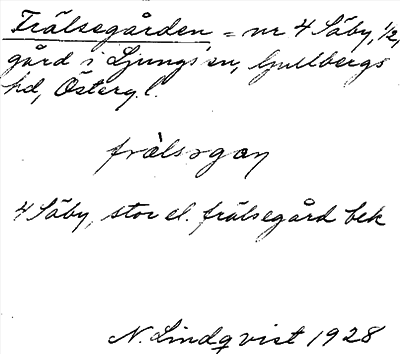 Frälsegården = nr 4 Säby, 1/2,
gård i Ljungs sn, Gullbergs
hd, Östergl.
frälsəgan
4 Säby, stor el. frälsegård bek
N. Lindqvist 1928